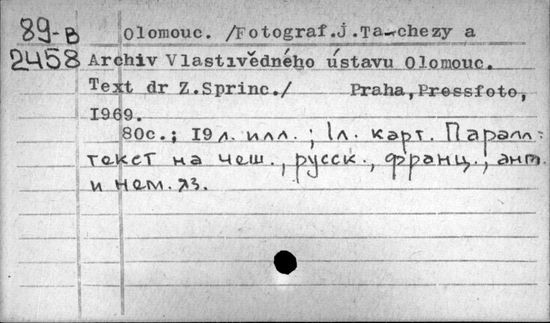 89-B Olomouc. /Fotograf.J.Ta-chezy a
2458 Archiv Vlastivědného ústavu Olomouc.
Text dr Z.Sprinc./ Praha,Pressfoto,
1969.
80с.; 19 л. илл.; 1л. карт. Паралл.
текст на чеш., русск., франц., англ.
и нем. яз.